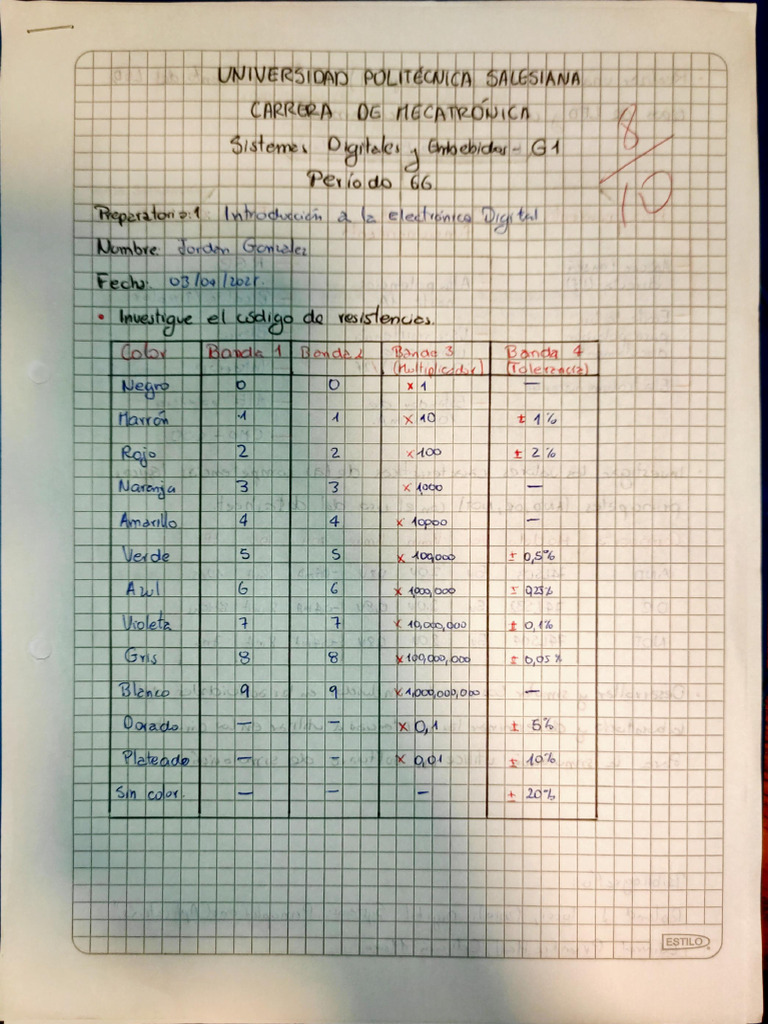 UNIVERSIDAD POLITÉCNICA SALESIANA
CARRERA DE MECATRÓNICA
Sistemas Digitales y Embebidos - G1
Período 66
8/10
Preparatorio: 1 Introducción a la electrónica Digital
Nombre: Jordan Gonzalez
Fecha:
• Investigue el código de resistencias.
Color Banda 1 Banda 2 Banda 3 (Multiplicador) Banda 4 (Tolerancia)
Negro 0 0 x 1 —
Marrón 1 1 x 10 ± 1%
Rojo 2 2 x 100 ± 2%
Naranja 3 3 x 1,000 —
Amarillo 4 4 x 10,000 —
Verde 5 5 x 100,000 ± 0,5%
Azul 6 6 x 1000,000 ± 0,25%
Violeta 7 7 x 10,000,000 ± 0,1%
Gris 8 8 x 100,000,000 ± 0,05%
Blanco 9 9 x 1,000,000,000 —
Dorado — — x 0,1 ± 5%
Plateado — — x 0,01 ± 10%
Sin color. — — — ± 20%
ESTILO